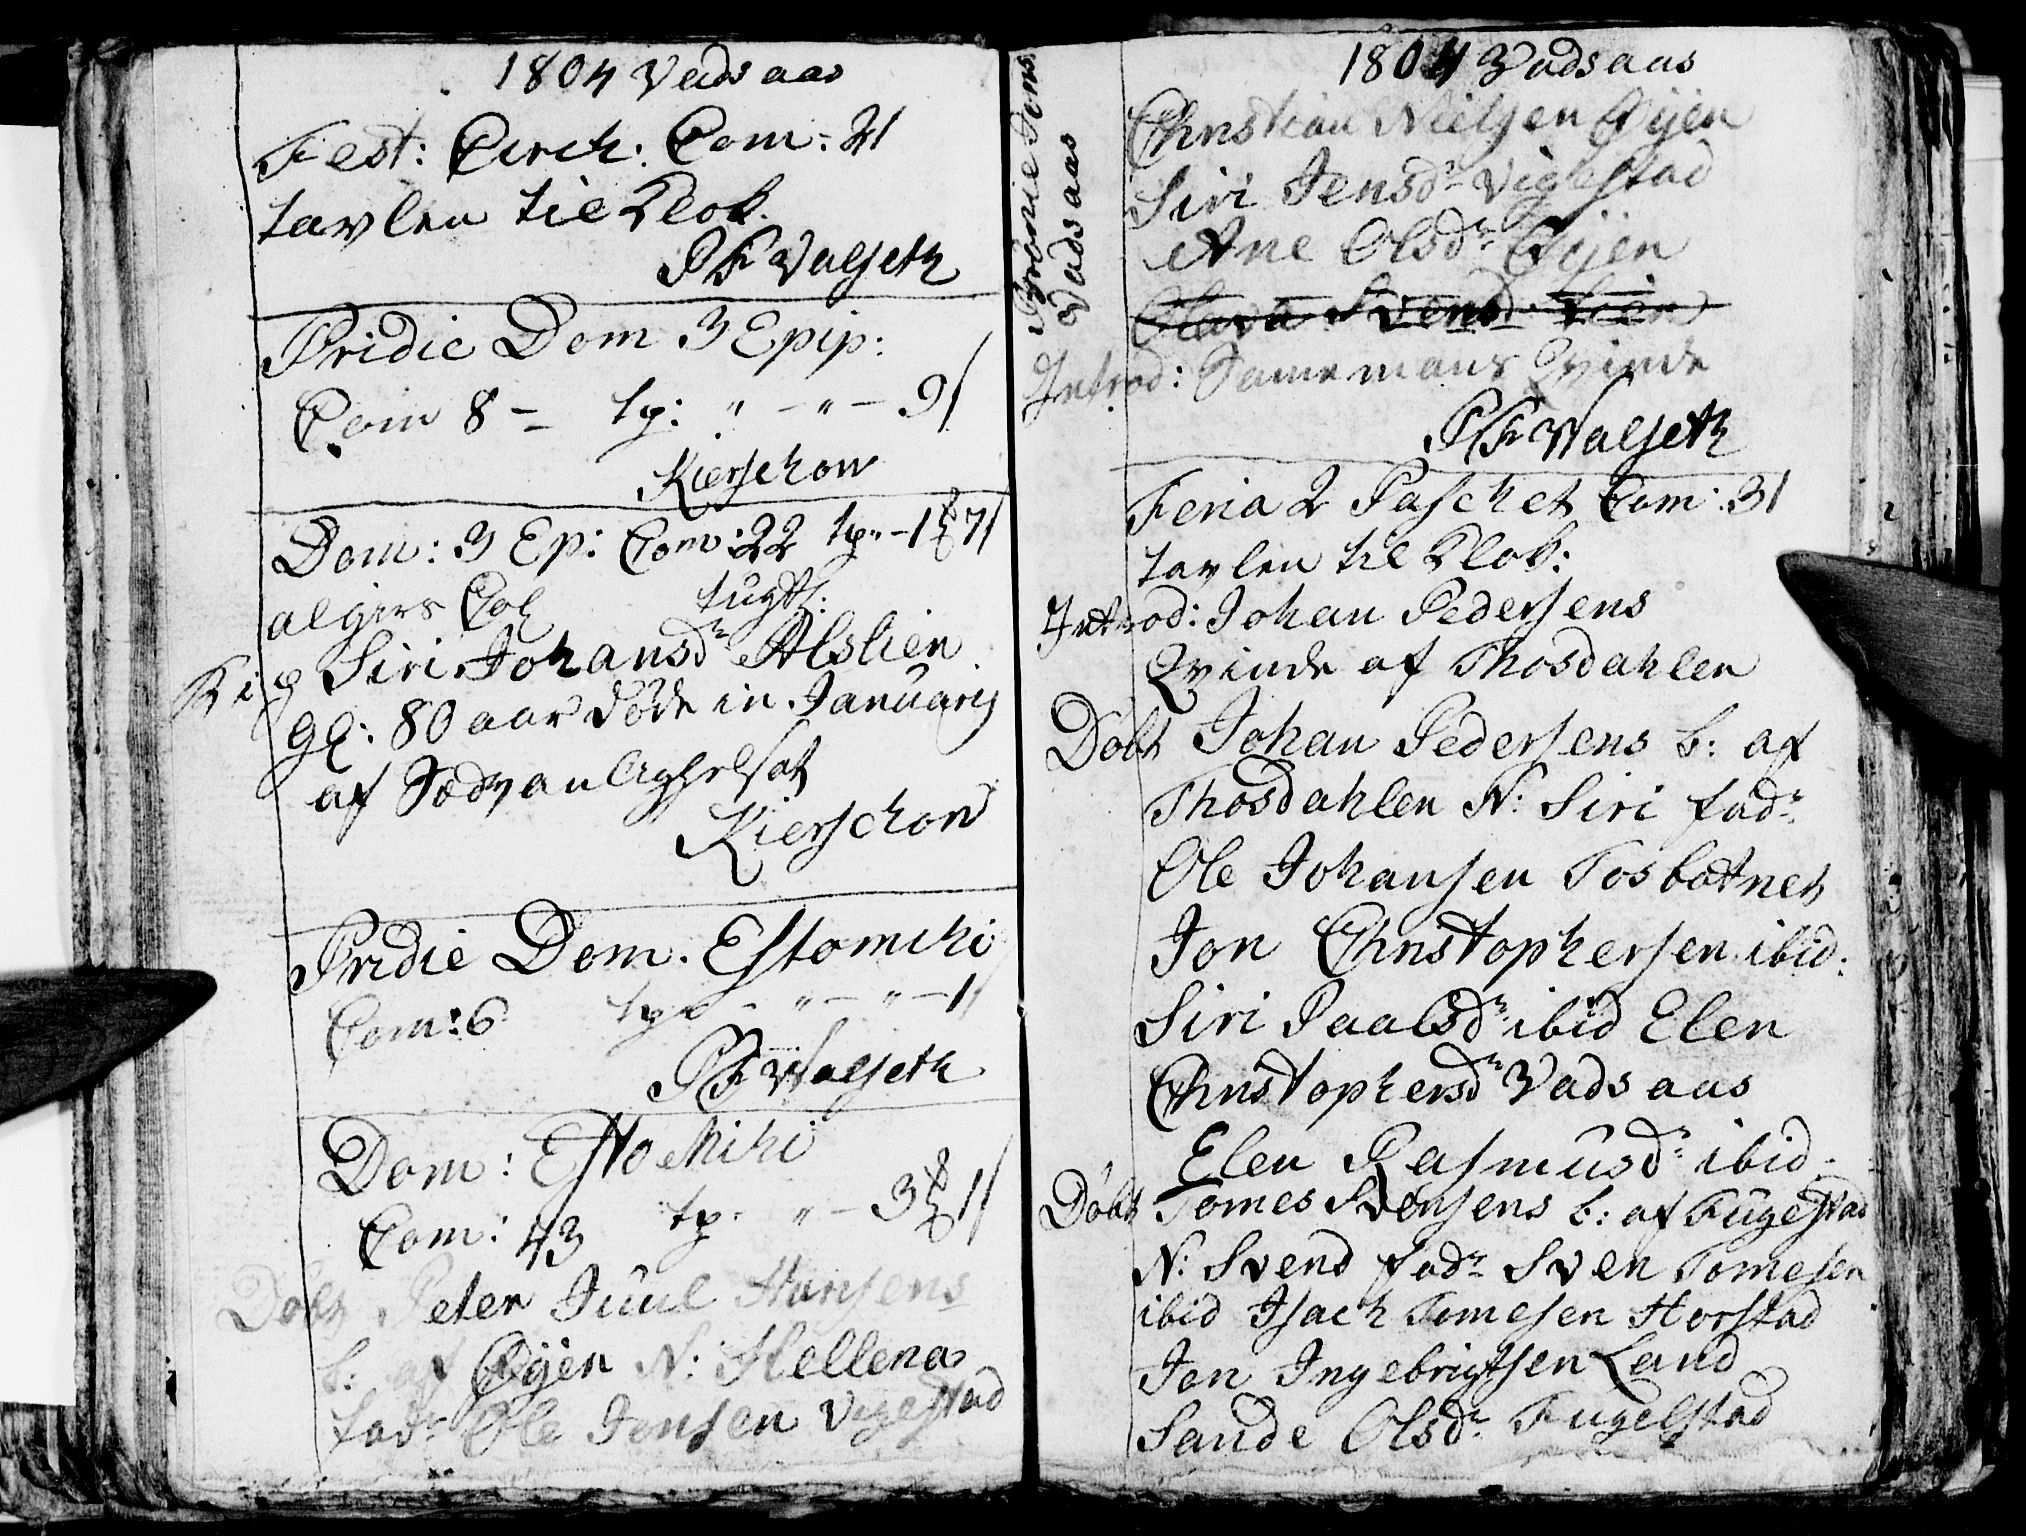 1804 Vadsaas
Fest: Circ: Com: 21
tavlen til Klok.
P F Walseth
Pridie Dom 3 Epip:
Com 8 – tp: " – " – 9
Kierschow
Dom: 3 Ep: Com: 22 tp –
Siri Johansdr Alslien
gl: 80 aar døde in Januarij
af
Kierschow
Pridie Dom. Estomihi
Com: 6 tp – " – " – 1
P F Walseth
Dom: Esto Mihi
Com: 43 tp. " – 3
Døbt Peter Juul Hansens
b: af Øijen N: Hellena
fadr Ole Jensen Vegestad
Vadsaas
1804 Vadsaas
Christian Nielsen Øijen
Siri Jensdr Vigestad
Ane Olsdr Øijen
Introd: Samemans Qvinde
P F Walseth
Feria 2 Paschet Com: 31
tavlen til Klok:
Introd: Johan Pedersens
Qvinde af Thosdahlen
Døbt Johan Pedersens b: af
Thosdahlen N: Siri fadr
Ole Johansen Tosbotnet
Jon Christophersen ibid:
Siri Paalsdr ibid Elen
Christophersdr Vadsaas
Elen Rasmusdr ibid
Døbt Tomes Svensens b: af Fugestad
N: Svend fadr Sven Tomesen
ibid Isach Tomesen Horstad
Jon Ingebrigtsen Land
Sande Olsdr Fugelstad